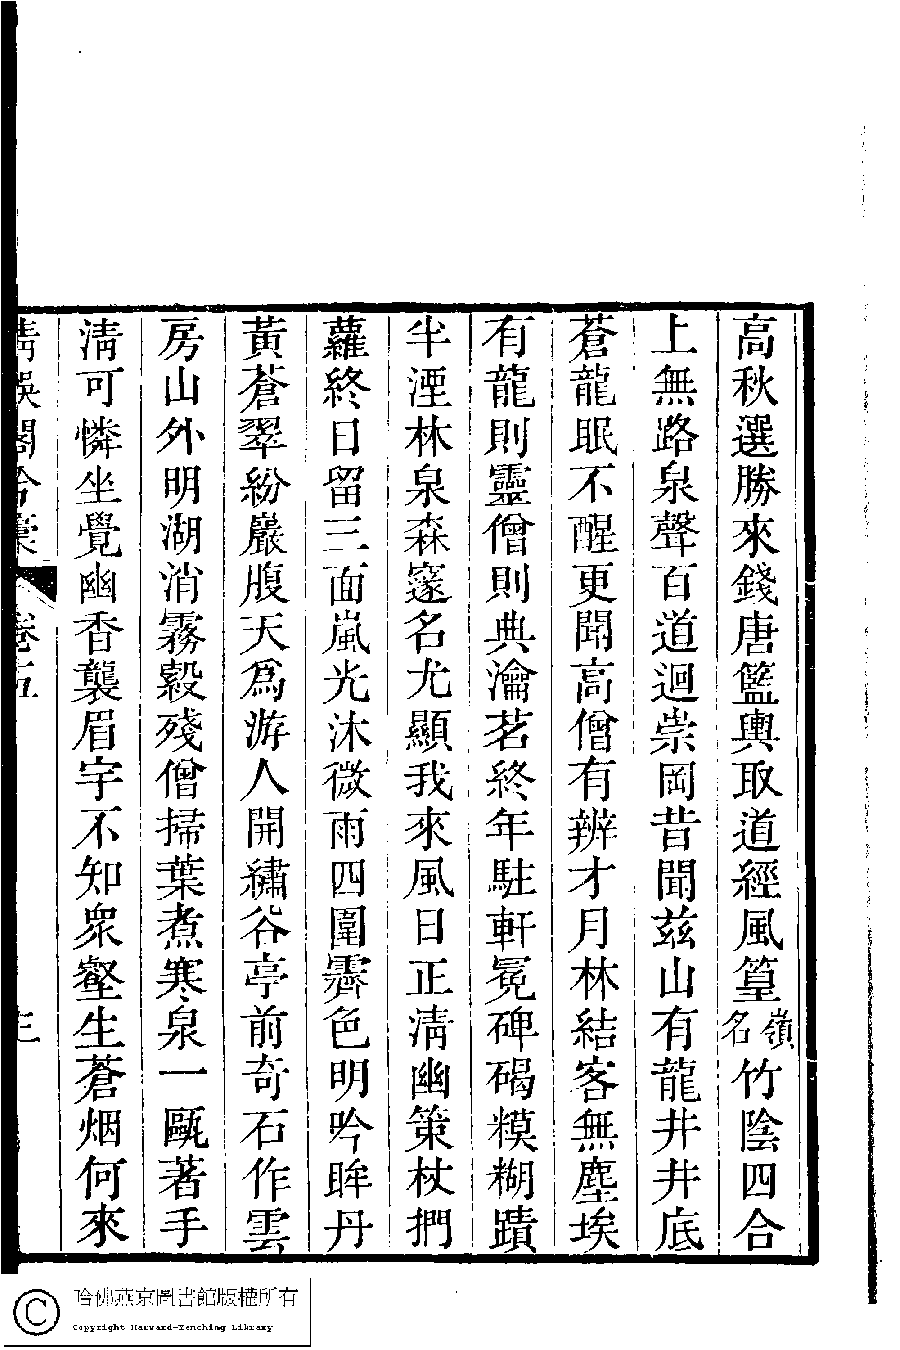 高秋選勝來錢唐籃輿取道經風篁嶺名竹陰四合
上無路泉聲百道迴崇岡昔聞茲山有龍井井底
蒼龍眠不醒更聞高僧有辨才月林結客無塵埃
有龍則靈僧則典瀹茗終年駐軒冕碑碣糢糊蹟
半湮林泉森邃名尤顯我來風日正清幽策杖捫
蘿終日留三面嵐光沐微雨四圍霽色明吟眸丹
黃蒼翠紛巖腹天為游人開繡谷亭前奇石作雲
房山外明湖消霧縠殘僧掃葉煮寒泉一甌著手
清可憐坐覺幽香襲眉宇不知眾壑生蒼烟何來
清娛閣吟稾 卷五 三
哈佛燕京圖書館版權所有
Copyright Harvard-Yenching Library